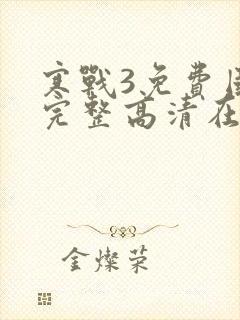 寒戰3免費
完整高清在
金燦荣